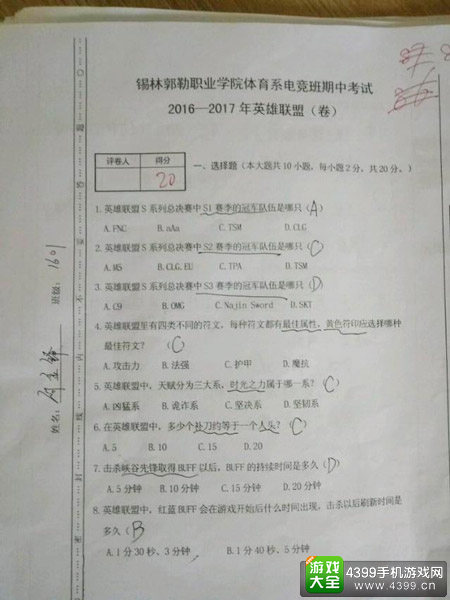 锡林郭勒职业学院体育系电竞班期中考试
2016—2017 年英雄联盟（卷）
评卷人 得分
20
一、选择题（本大题共 10 小题，每小题 2 分，共 20 分。）
1. 英雄联盟 S 系列总决赛中 S1 赛季的冠军队伍是哪只（A）
A. FNC B. aAa C. TSM D. CLG
2. 英雄联盟 S 系列总决赛中 S2 赛季的冠军队伍是哪只（C）
A. M5 B. CLG.EU C. TPA D. TSM
3. 英雄联盟 S 系列总决赛中 S3 赛季的冠军队伍是哪只（D）
A. C9 B. OMG C. Najin Sword D. SKT
4. 英雄联盟里有四类不同的符文，每种符文都有最佳属性，黄色符印应选择哪种
最佳符文？（C）
A. 攻击力 B. 法强 C. 护甲 D. 魔抗
5. 英雄联盟中，天赋分为三大系，时光之力属于哪一系？（C）
A. 凶猛系 B. 诡诈系 C. 坚决系 D. 坚韧系
6. 在英雄联盟中，多少个补刀约等于一个人头？（C）
A. 5 B. 10 C. 15 D. 20
7. 击杀峡谷先锋取得 BUFF 以后，BUFF 的持续时间是多久（D）
A. 5 分钟 B. 10 分钟 C. 15 分钟 D. 20 分钟
8. 英雄联盟中，红蓝 BUFF 会在游戏开始后什么时间出现，击杀以后刷新时间是
多久（B）
A. 1 分 30 秒、3 分钟 B. 1 分 40 秒、5 分钟
班级：1601
姓名：
密
封
线
内
不
要
答
题
游戏
大全
4399手机游戏网
www.4399.cn